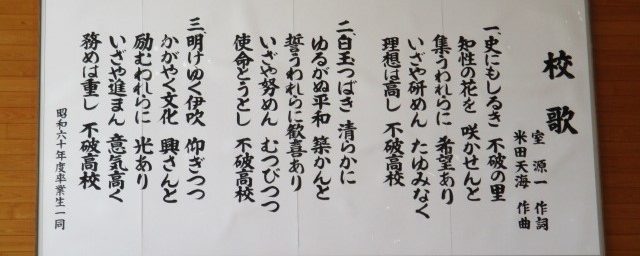 校歌
室源一 作詞
米田天海 作曲
一、史にもしるき 不破の里
知性の花を 咲かせんと
集うわれらに 希望あり
いざや研めん たゆみなく
理想は高し 不破高校
二、白玉つばき 清らかに
ゆるがぬ平和 築かんと
誓うわれらに 歓喜あり
いざや努めん むつびつつ
使命とうとし 不破高校
三、明けゆく伊吹 仰ぎつつ
かがやく文化 興さんと
励むわれらに 光あり
いざや進まん 意気高く
務めは重し 不破高校
昭和六十年度卒業生一同